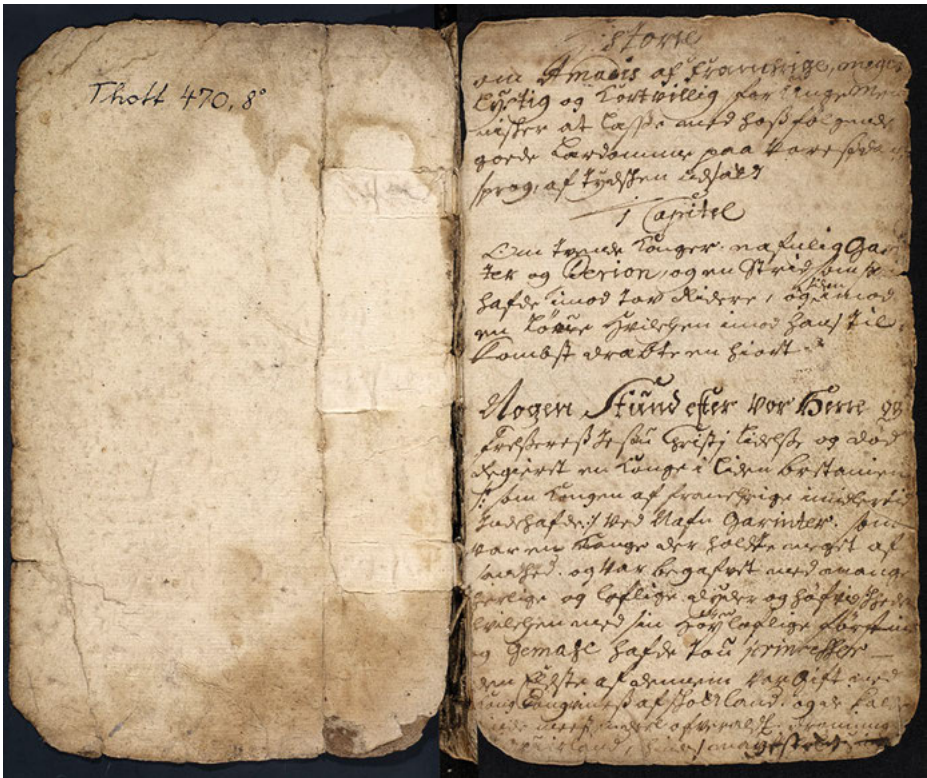 Thott 470, 8°
Historie
om Amadis af Franckrige, meget
Lystig og Kortvillig for Unge Men
nisker at Læsse med hoßfølgende
goede Lærdomme paa Vore
sprog, af Tydsken udsat
1 Capitel
Om Tvende Konger nafnlig Gar
ter og Perion, og en Strid som
hafde imod Tov Ridere, og siden imod
en Løwe Hvilchen imod hans Til
kombst dræbte en hiort
Nogen Stund efter Vor Herre og
Frelseres Jesu Christi Lidelse og død
Regieret en Konge i Liden Bretanien
som Kongen af Franchrige imidlertid
Indehafde Ved Nafn Garinter. som
Var en Konge der holdte meget af
og Var begafvet med mange
herlige og loflige dyder og
hvilchen med sin Høyloflige Førstinde
og Gemahl hafde Tou Princesser
den Eldste af dennem Var Gift med
af Skotland. og